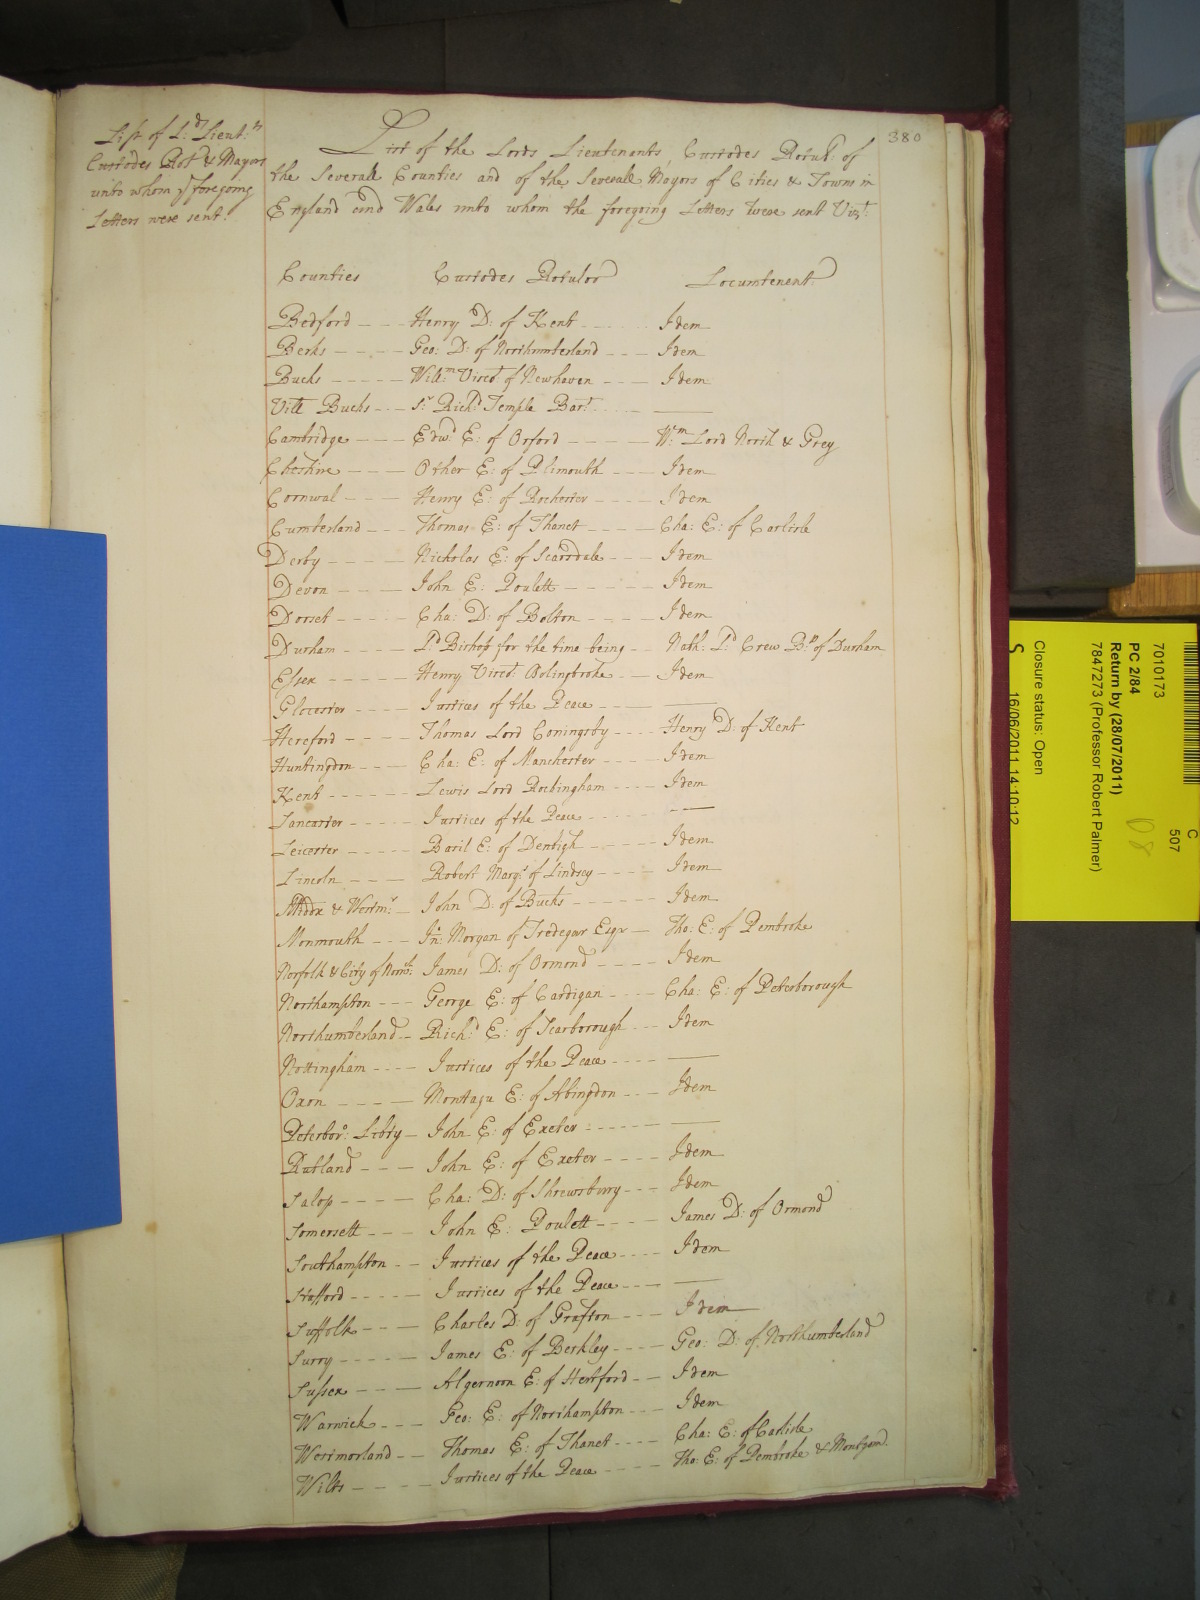 380
List of L:d Lieut:ts
Custodes Rot & Mayors
unto whom ye foregoing
Letters were sent.
List of the Lords Lieutenants, Custodes Rotul: of
the Severall Counties and of the Severall Mayors of Cities & Towns in
England and Wales unto whom the foregoing Letters were sent Vizt.
Counties Custodes Rotulor Locumtenent
Bedford --- Henry D: of Kent ------ Idem
Berks ----- Geo: D: of Northumberland --- Idem
Bucks ----- Willm Visct of Newhaven --- Idem
Vill Bucks -- Sr Richd Temple Bart. ---- ——
Cambridge --- Edwd E: of Orford ----- Wm Lord North & Grey
Cheshire --- Other E: of Plimouth ---- Idem
Cornwal ---- Henry E: of Rochester ---- Idem
Cumberland --- Thomas E: of Thanet ---- Cha: E: of Carlisle
Derby ----- Nicholas E: of Scarsdale --- Idem
Devon ---- John E: Poulett ------ Idem
Dorset ---- Cha: D: of Bolton ---- Idem
Durham ---- Ld Bishop for the time being -- Nath: Ld Crew Bp of Durham
Essex ----- Henry Visct Bolingbroke -- Idem
Glocester --- Justices of the Peace ---- ——
Hereford ---- Thomas Lord Coningsby ---- Henry D: of Kent
Huntingdon ---- Cha: E: of Manchester ---- Idem
Kent ------ Lewis Lord Rockingham ---- Idem
Lancaster ---- Justices of the Peace ----- ——
Leicester ---- Basil E: of Denbigh ----- Idem
Lincoln ---- Robert Marqs of Lindsey --- Idem
Middx & Westmr - John D: of Bucks ----- Idem
Monmouth --- Jn: Morgan of Tredegar Esqr -- Tho: E: of Pembroke
Norfolk & City of Norwch: James D: of Ormond ---- Idem
Northampton --- George E: of Cardigan ---- Cha: E: of Peterborough
Northumberland -- Richd E: of Scarborough --- Idem
Nottingham ---- Justices of the Peace ---- ——
Oxon ----- Montagu E: of Abingdon --- Idem
Peterbor: Libty - John E: of Exeter ----- ——
Rutland --- John E: of Exeter ---- Idem
Salop ----- Cha: D: of Shrewsbury --- Idem
Somersett --- John E: Poulett ---- James D: of Ormond
Southampton -- Justices of the Peace ---- Idem
Stafford ----- Justices of the Peace --- ——
Suffolk ---- Charles D: of Grafton ---- Idem
Surry ----- James E: of Berkley ---- Geo: D: of Northumberland
Sussex ---- Algernoon E: of Hertford -- Idem
Warwick --- Geo: E: of Northampton --- Idem
Westmorland -- Thomas E: of Thanet ---- Cha: E: of Carlisle
Wilts ----- Justices of the Peace ---- Tho: E: of Pembroke & Montgom.
C
507
7010173
PC 2/84
Return by (28/07/2011)
7847273 (Professor Robert Palmer)
Closure status: Open
S
16/06/2011 14:10:12